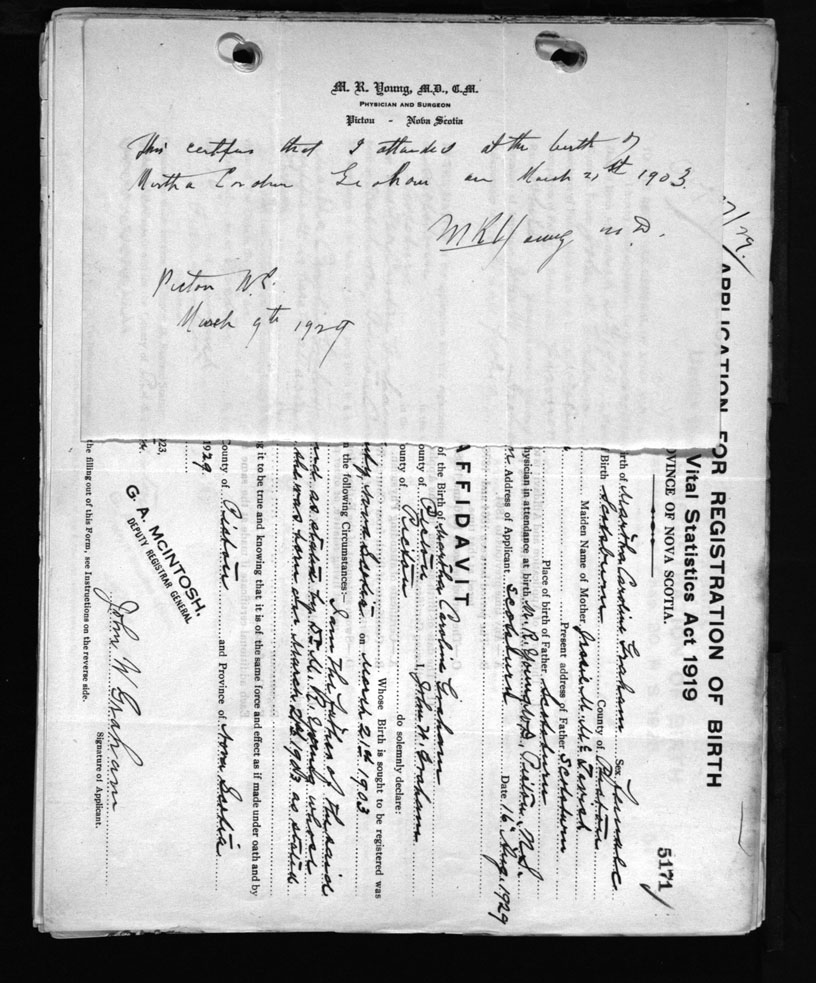 M. R. Young, M.D., C.M.
PHYSICIAN AND SURGEON
Pictou - Nova Scotia
This certifies that I attended at the birth of
Martha Graham on March 21st 1903.
M R Young M.D.
Pictou N.S.
March 9th 1929
APPLICATION FOR REGISTRATION OF BIRTH
Vital Statistics Act 1919
OVINCE OF NOVA SCOTIA.
5171
irth of Martha Caroline Graham Sex Female
Birth Scotsburn County of Pictou
Maiden Name of Mother M.
Present address of Father Scotsburn
Place of birth of Father Scotsburn
hysician in attendance at birth M. R. Young M.D., Pictou, N.S.
Address of Applicant Scotsburn Date 16 Aug 1929
AFFIDAVIT
of the Birth of Martha Caroline Graham
ounty of Pictou I, John W. Graham
ounty of Pictou do solemnly declare:
Whose Birth is sought to be registered was
Nova Scotia on March 21st 1903
n the following Circumstances:— I am the father of the said
as stated by Dr. M. R. Young whose
was born on March 21st 1903 as stated
g it to be true and knowing that it is of the same force and effect as if made under oath and by
County of Pictou and Province of Nova Scotia
1929.
1923,
G. A. McINTOSH,
DEPUTY REGISTRAR GENERAL
John W Graham
Signature of Applicant.
the filling out of this Form, see Instructions on the reverse side.